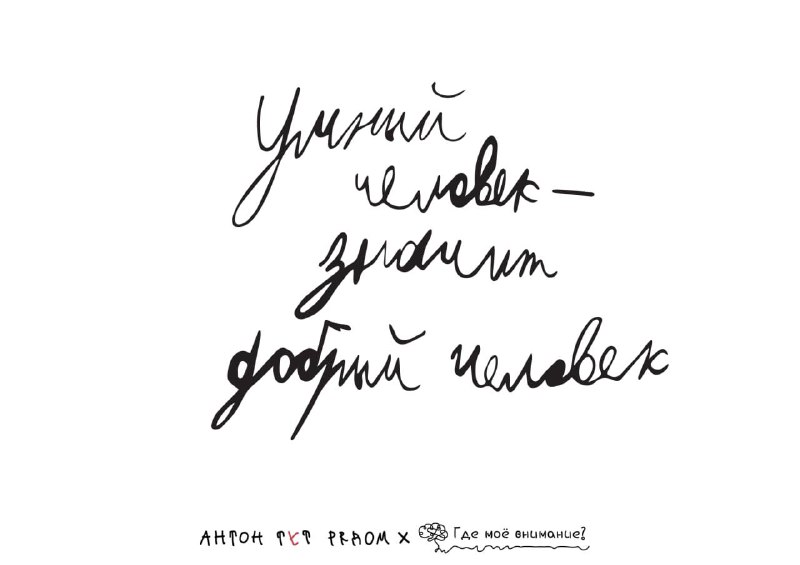 Умный
человек —
значит
добрый человек
АНТОН ТУТ РЯДОМ X Где моё внимание?